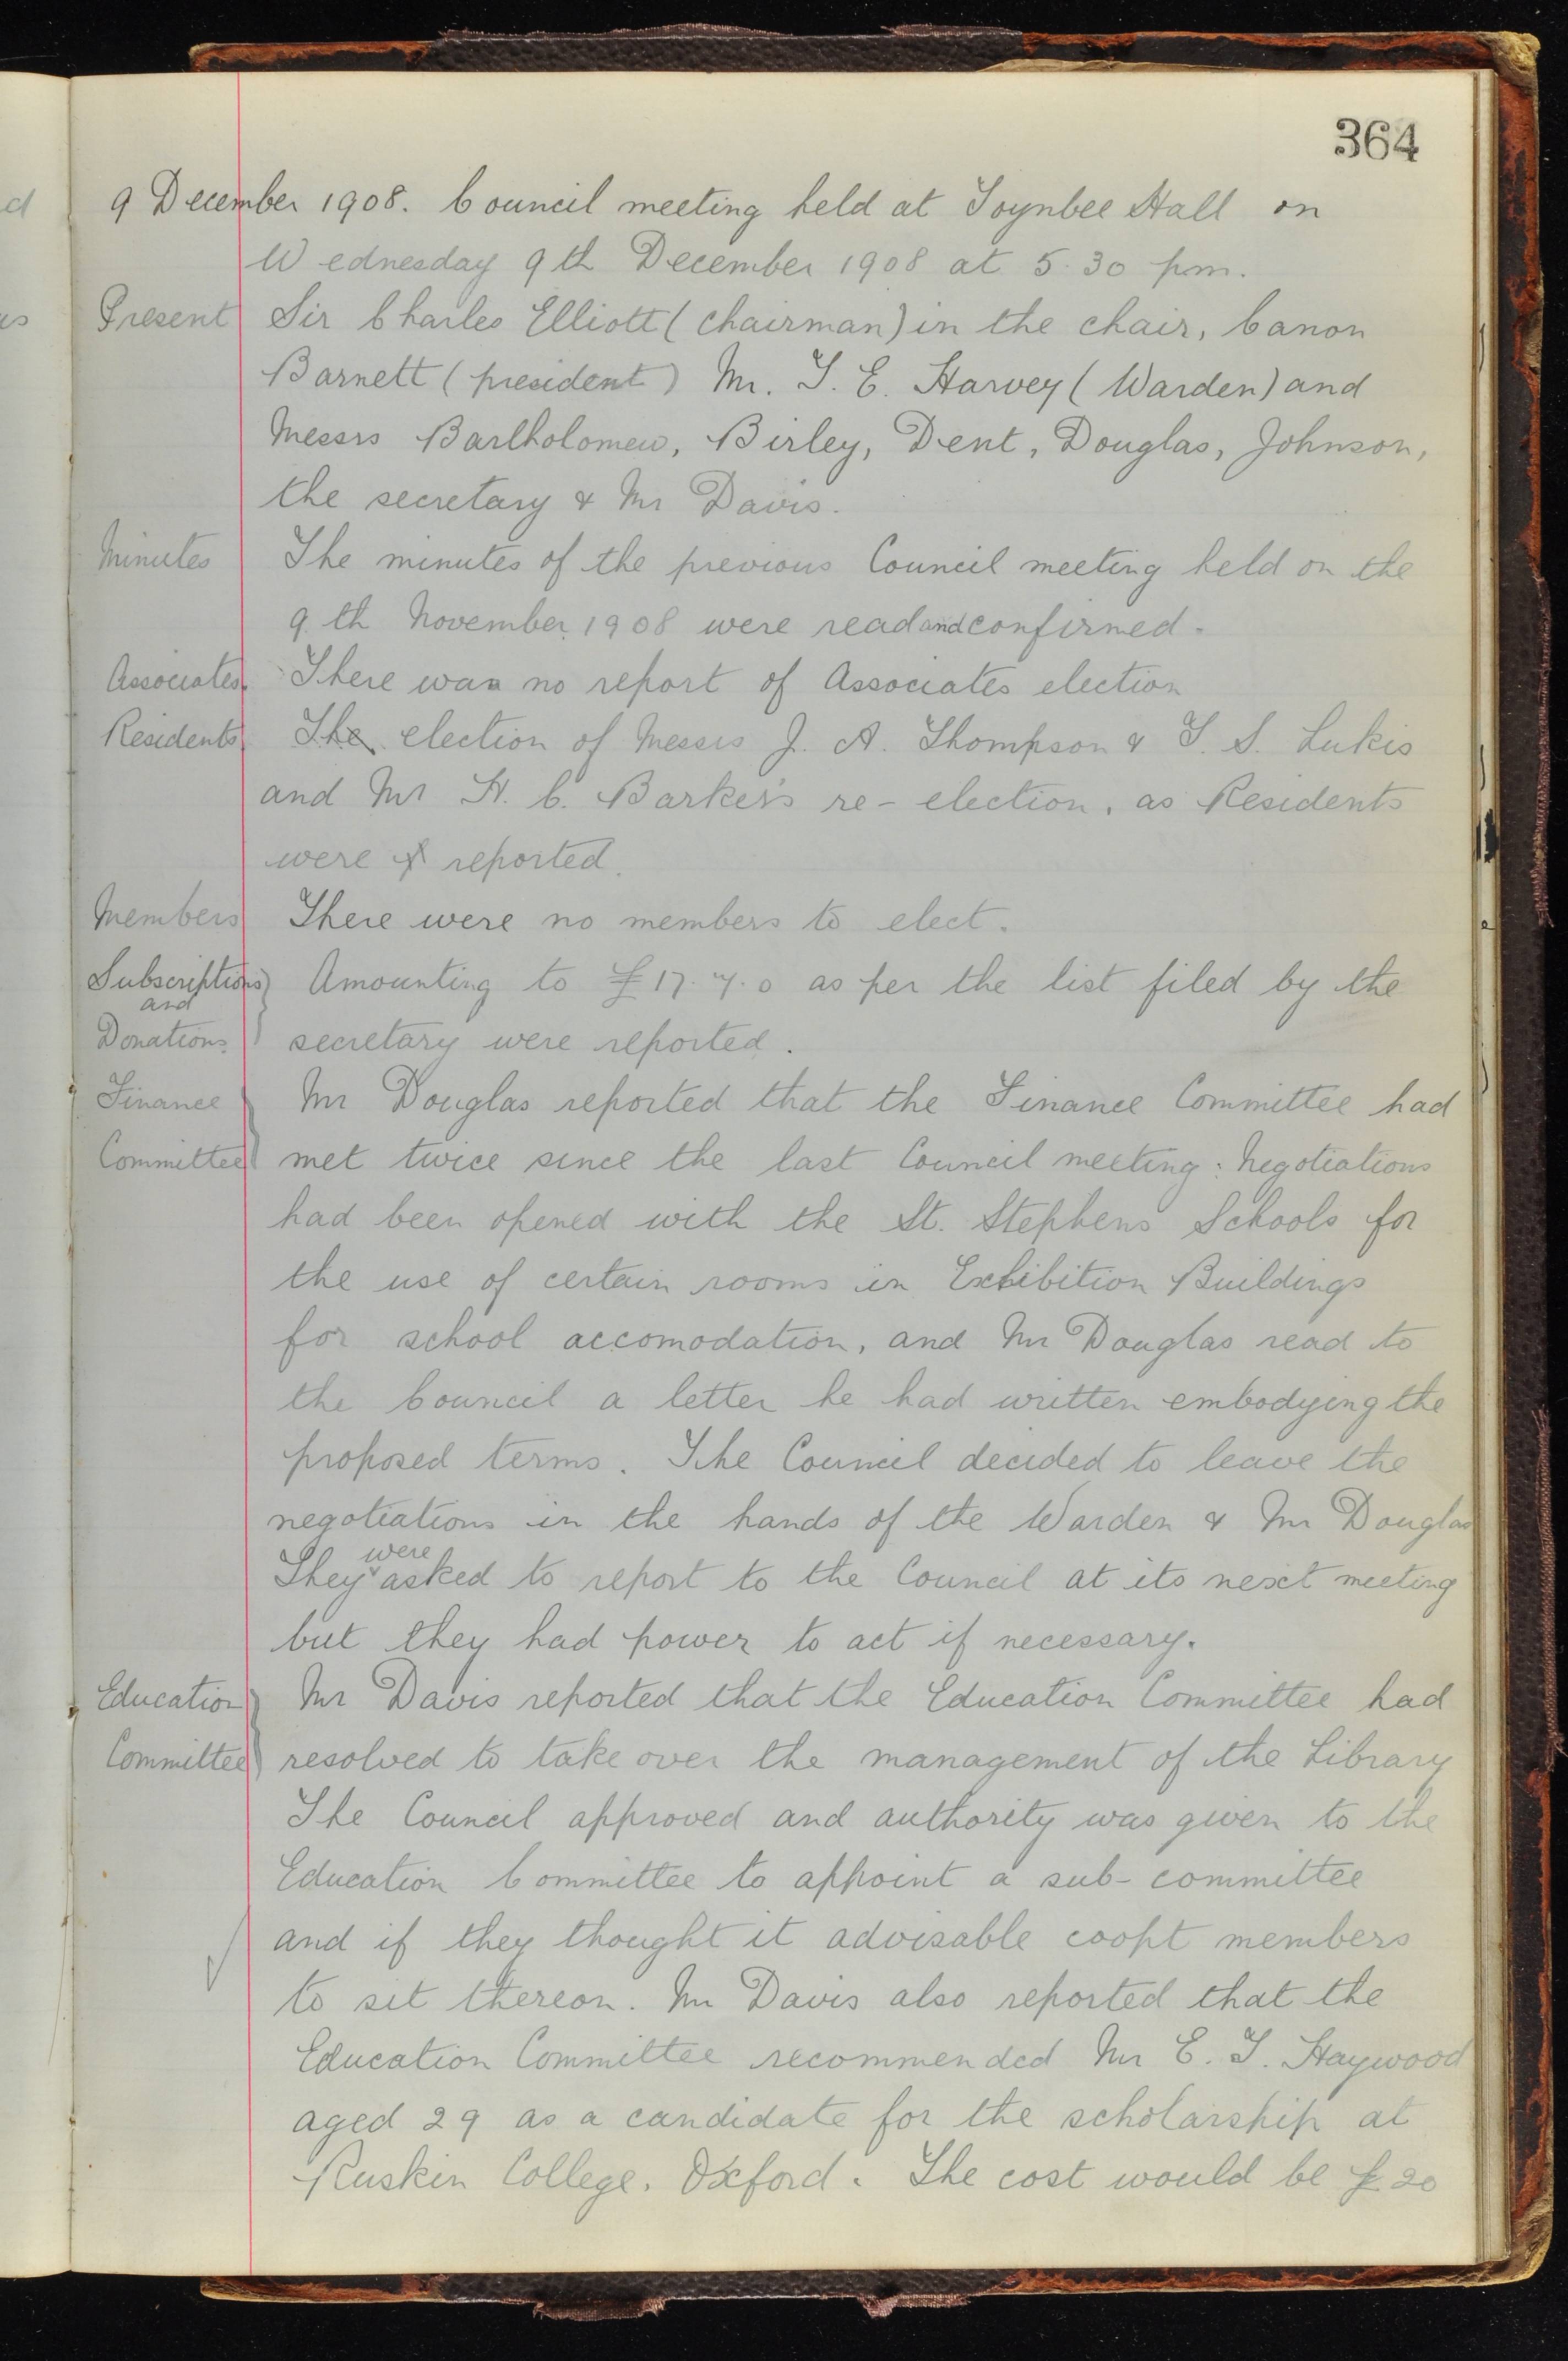 364
9 December 1908. Council meeting held at Toynbee Hall on
Wednesday 9th December 1908 at 5.30 pm.
Present Sir Charles Elliott (chairman) in the chair, Canon
Barnett (president) Mr. T. E. Harvey (Warden) and
Messrs Bartholomew, Birley, Dent, Douglas, Johnson,
the secretary & Mr Davis.
Minutes The minutes of the previous Council meeting held on the
9th November 1908 were read and confirmed.
Associates. There was no report of Associates election
Residents. The election of Messrs J. A. Thompson & T. S. Lukis
and Mr H. C. Barker's re-election, as Residents
were reported.
Members There were no members to elect.
Subscriptions Amounting to £17.7.0 as per the list filed by the
and
Donations. secretary were reported.
Finance Mr Douglas reported that the Finance Committee had
Committee met twice since the last Council meeting: Negotiations
had been opened with the St. Stephens Schools for
the use of certain rooms in Exhibition Buildings
for school accomodation, and Mr Douglas read to
the Council a letter he had written embodying the
proposed terms. The Council decided to leave the
negotiations in the hands of the Warden & Mr Douglas
They were asked to report to the Council at its next meeting
but they had power to act if necessary.
Education Mr Davis reported that the Education Committee had
Committee resolved to take over the management of the Library
The Council approved and authority was given to the
Education Committee to appoint a sub-committee
and if they thought it advisable coopt members
to sit thereon. Mr Davis also reported that the
Education Committee recommended Mr E. T. Haywood
aged 29 as a candidate for the scholarship at
Ruskin College, Oxford. The cost would be £20